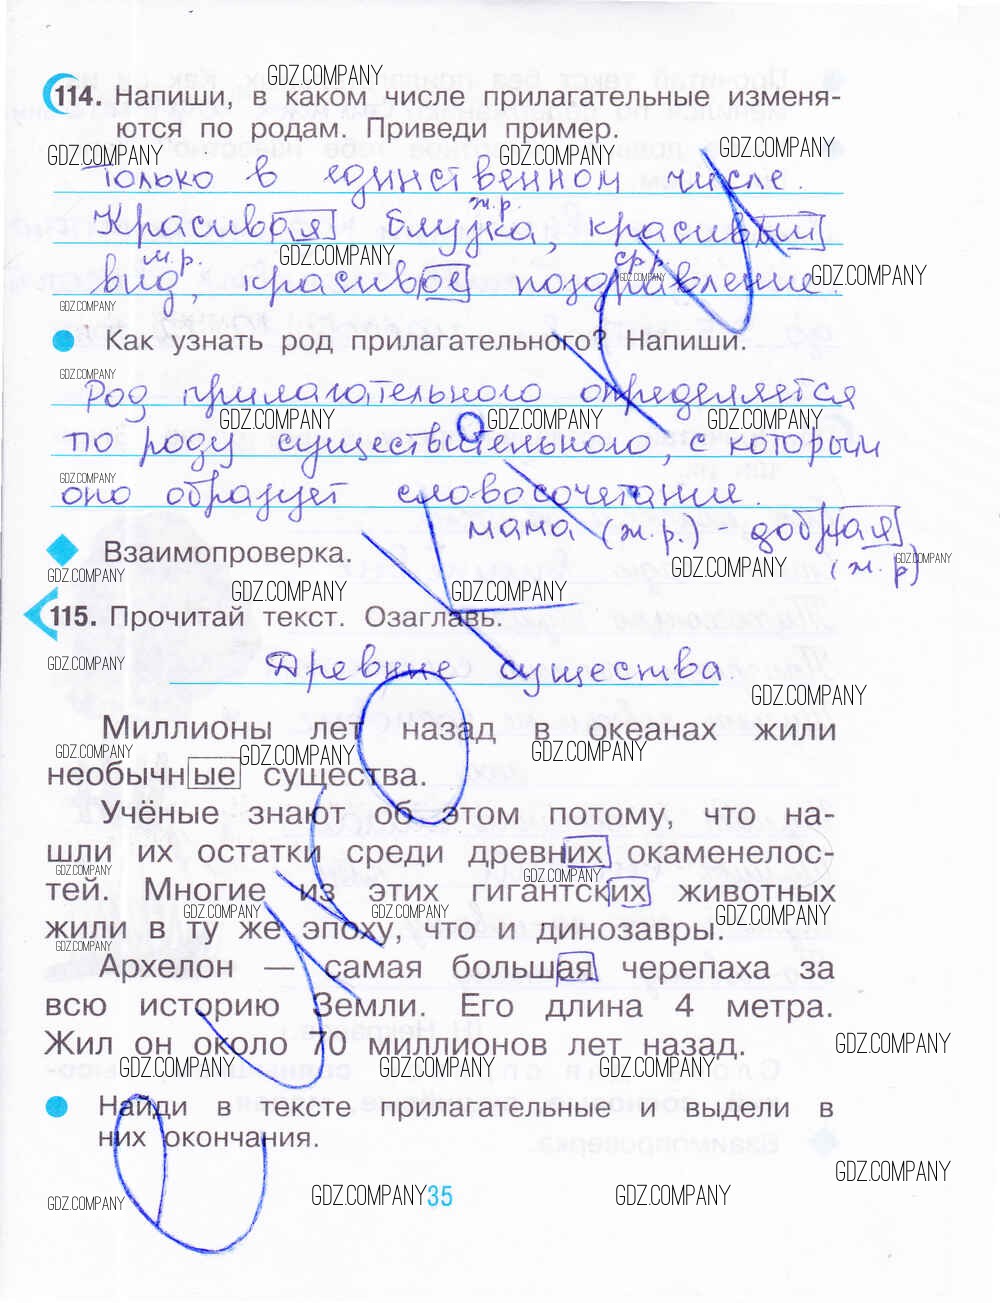 GDZ.COMPANY
114. Напиши, в каком числе прилагательные изменя-
ются по родам. Приведи пример.
GDZ.COMPANY GDZ.COMPANY GDZ.COMPANY
Только в единственном числе.
ж.р.
Красивая блузка, красивый
м.р. GDZ.COMPANY ср.р. GDZ.COMPANY GDZ.COMPANY
вид, красивое поздравление.
GDZ.COMPANY
Как узнать род прилагательного? Напиши.
GDZ.COMPANY
Род прилагательного определяется
GDZ.COMPANY GDZ.COMPANY GDZ.COMPANY
по роду существительного, с которым
GDZ.COMPANY
оно образует словосочетание.
мама (ж.р.) - добрая
Взаимопроверка.
GDZ.COMPANY GDZ.COMPANY
(ж.р)
GDZ.COMPANY GDZ.COMPANY GDZ.COMPANY
115. Прочитай текст. Озаглавь.
GDZ.COMPANY
Древние существа.
GDZ.COMPANY
Миллионы лет назад в океанах жили
GDZ.COMPANY GDZ.COMPANY GDZ.COMPANY
необычные существа.
Учёные знают об этом потому, что на-
шли их остатки среди древних окаменелос-
GDZ.COMPANY GDZ.COMPANY
тей. Многие из этих гигантских животных
GDZ.COMPANY GDZ.COMPANY GDZ.COMPANY
жили в ту же эпоху, что и динозавры.
GDZ.COMPANY
Археолон — самая большая черепаха за
всю историю Земли. Его длина 4 метра.
Жил он около 70 миллионов лет назад.
GDZ.COMPANY
GDZ.COMPANY GDZ.COMPANY GDZ.COMPANY
Найди в тексте прилагательные и выдели в
них окончания.
GDZ.COMPANY
GDZ.COMPANY GDZ.COMPANY 35 GDZ.COMPANY